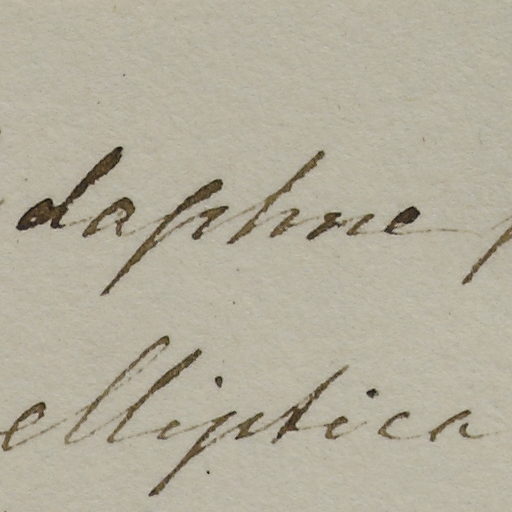 daphne
elliptica